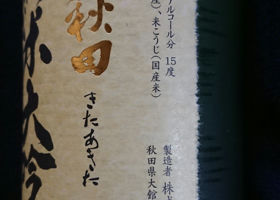 アルコール分 15度
、米こうじ(国産米)
秋田
きたあきた
大吟
製造者 株
秋田県大館